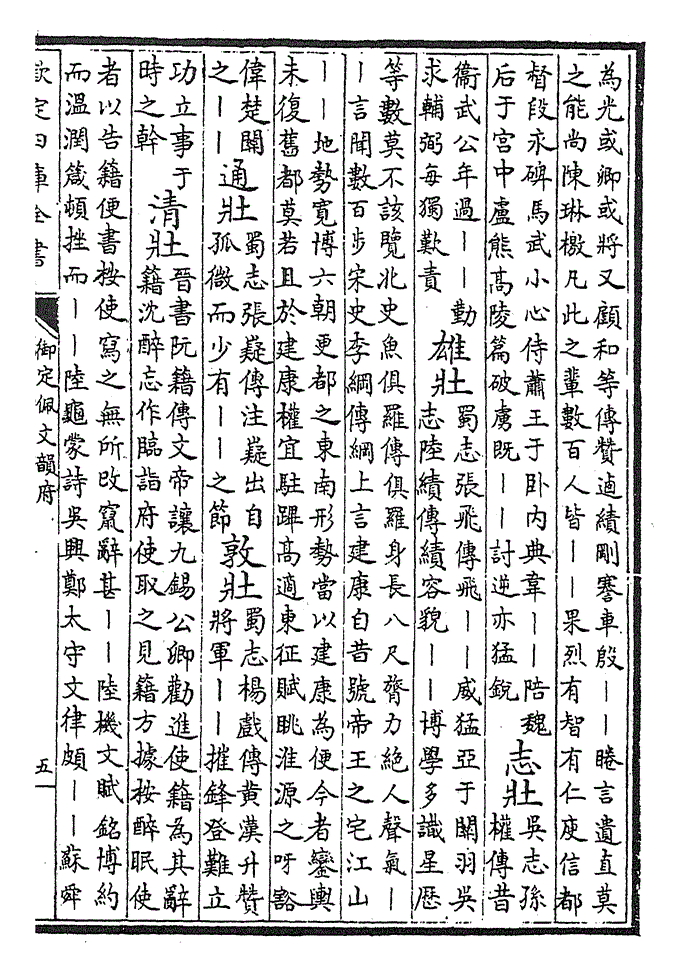 為光或卿或將又顧和等傳贊逌績剛謇車殷||睠言遺直莫
之能尚陳琳檄凡此之輩數百人皆||果烈有智有仁庾信都
督段永碑馬武小心侍蕭王于卧内典韋||陪魏
后于宫中盧熊髙陵篇破虜既||討逆亦猛銳
志壯
吳志孫
權傳昔
衞武公年過||勤
求輔弼每獨歎責
雄壯
蜀志張飛傳飛||威猛亞于關羽吳
志陸績傳績容貌||博學多識星厯
等數莫不該覽北史魚俱羅傳俱羅身長八尺膂力絶人聲氣|
|言聞數百步宋史李綱傳綱上言建康自昔號帝王之宅江山
||地勢寛博六朝更都之東南形勢當以建康為便今者鑾輿
未復舊都莫若且於建康權宜駐蹕髙適東征賦眺淮源之呀豁
偉楚關
之||
通壯
蜀志張嶷傳注嶷出自
孤微而少有||之節
敦壯
蜀志楊戲傳黄漢升贊
將軍||摧鋒登難立
功立事于
時之幹
清壯
晉書阮籍傳文帝讓九錫公卿勸進使籍為其辭
籍沈醉忘作臨詣府使取之見籍方據桉醉眠使
者以告籍便書桉使寫之無所改竄辭甚||陸機文賦銘博約
而溫潤箴頓挫而||陸龜蒙詩吳興鄭太守文律頗||蘇舜
欽定四庫全書
御定佩文韻府
五